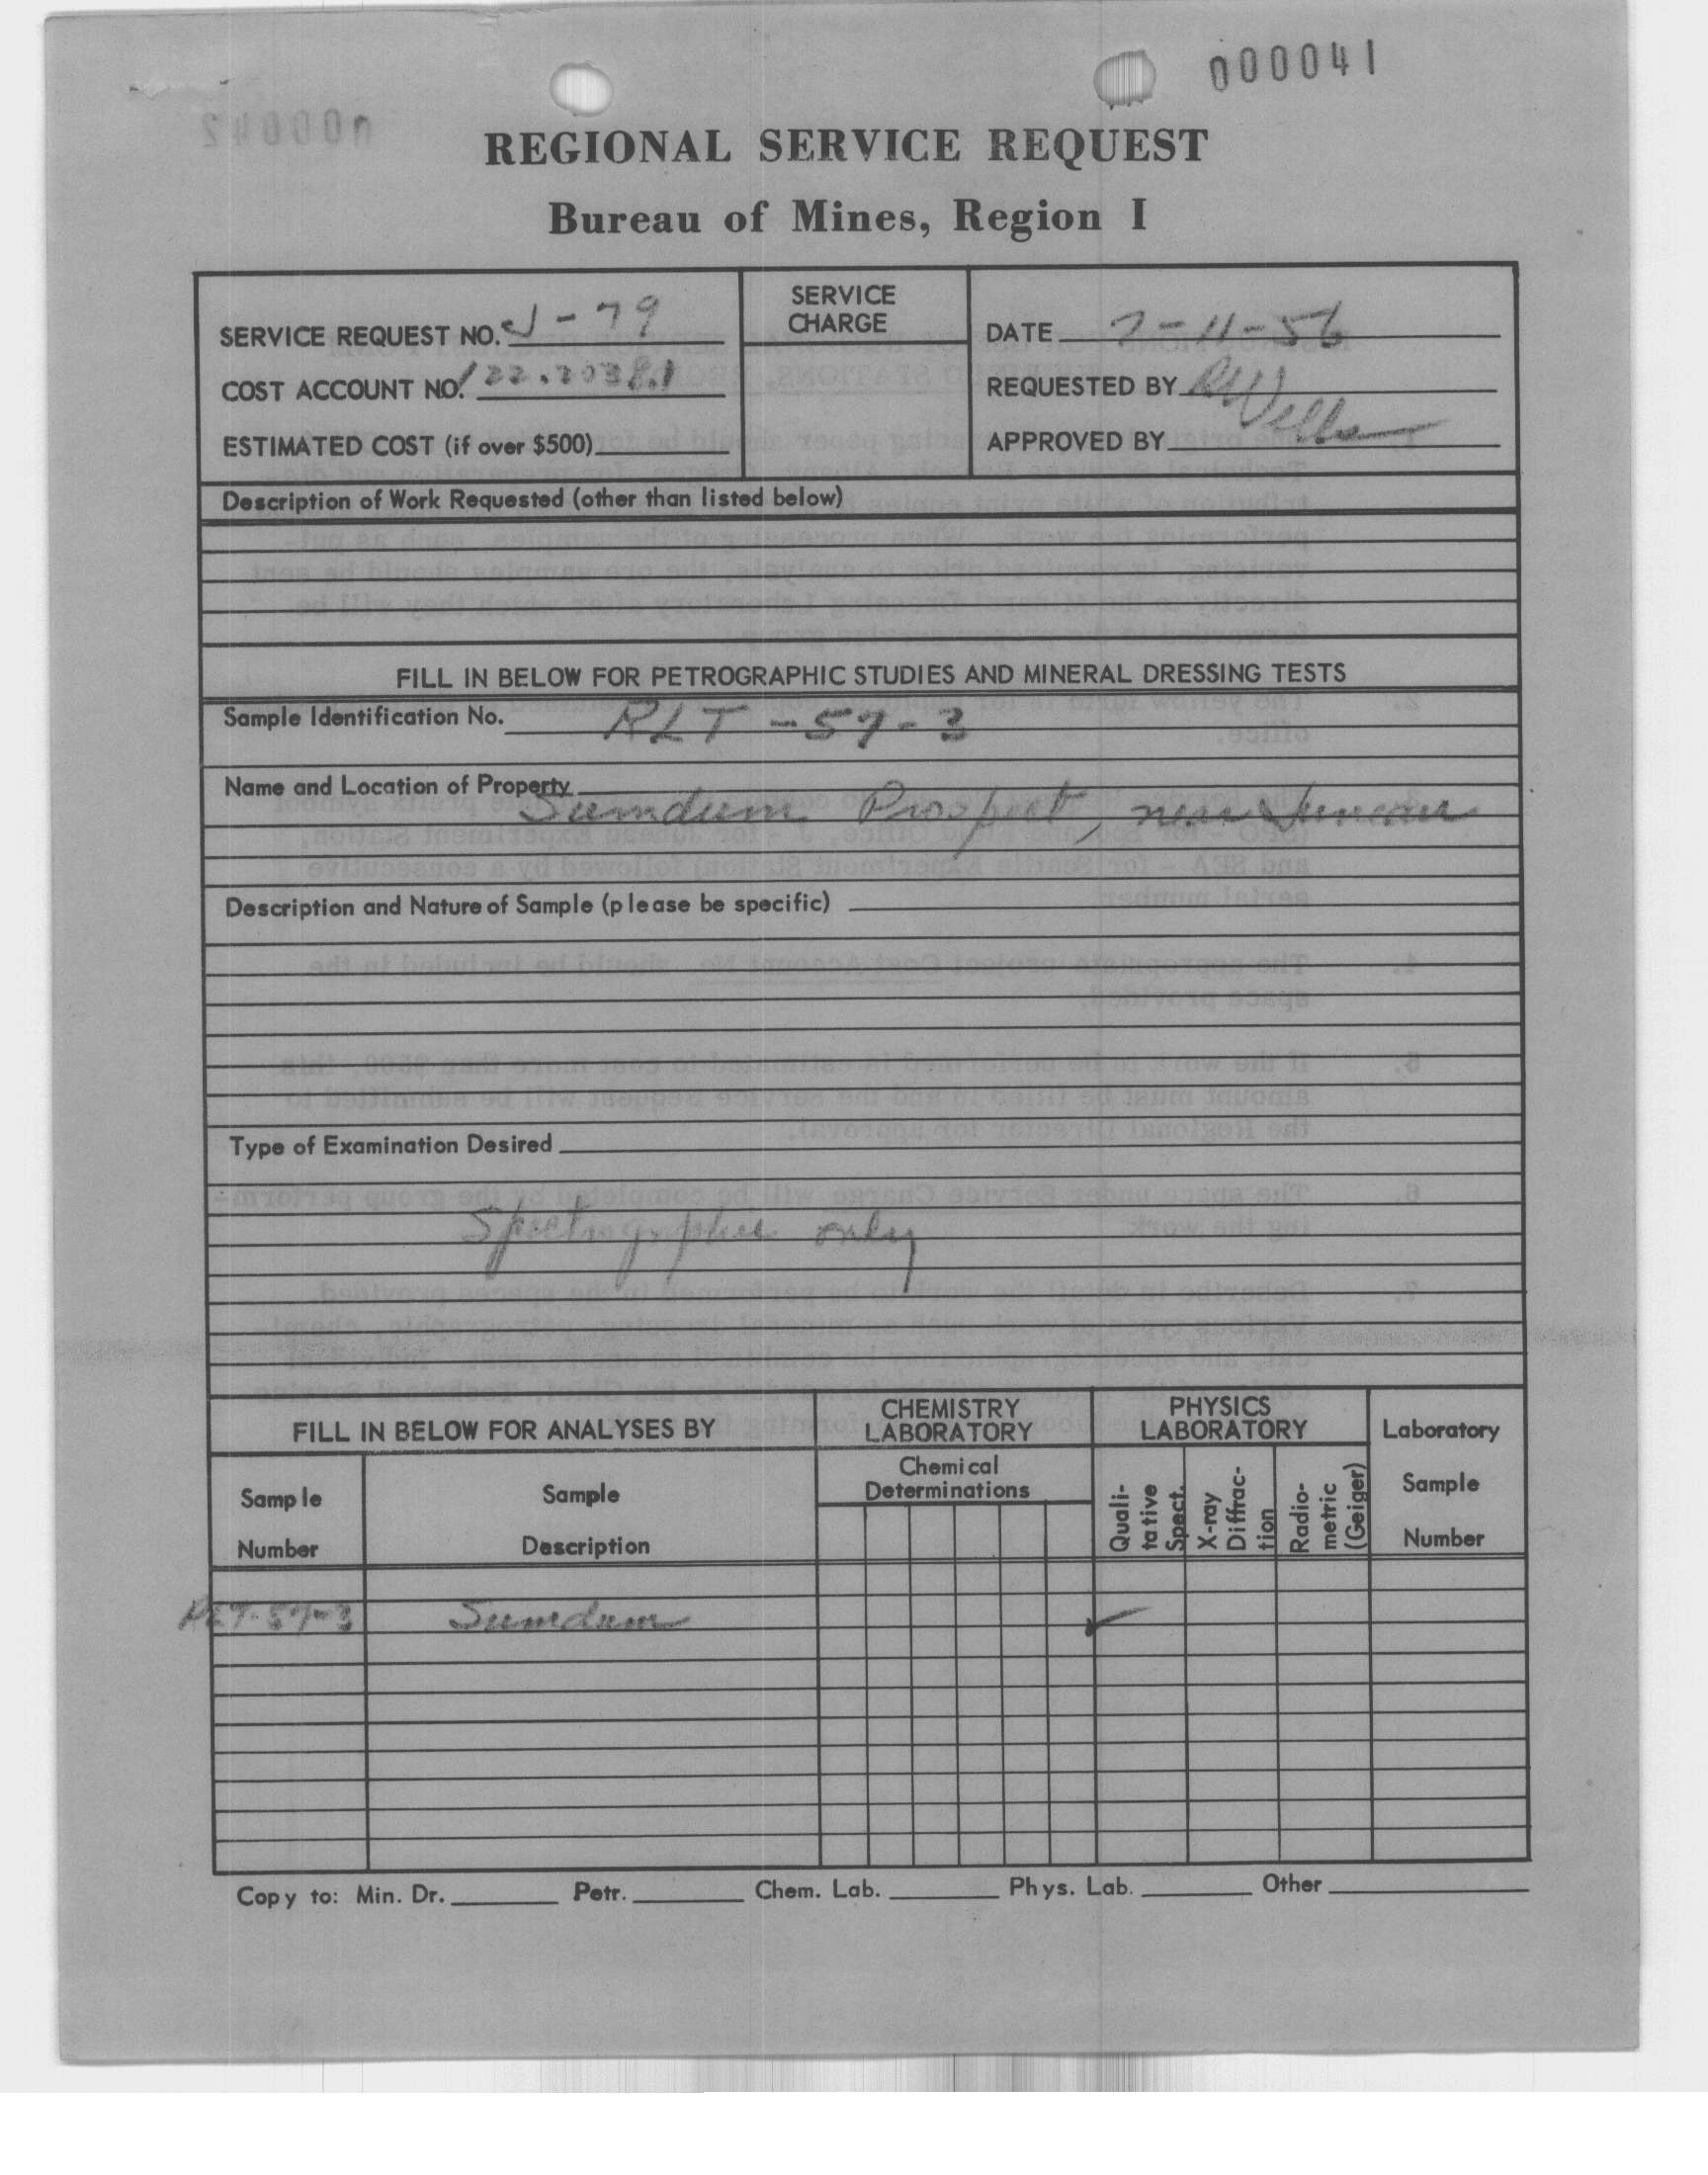 000041
REGIONAL SERVICE REQUEST
Bureau of Mines, Region I
SERVICE REQUEST NO. J-79
COST ACCOUNT NO.
ESTIMATED COST (if over $500)
SERVICE
CHARGE
DATE 7-11-56
REQUESTED BY
APPROVED BY
Description of Work Requested (other than listed below)
FILL IN BELOW FOR PETROGRAPHIC STUDIES AND MINERAL DRESSING TESTS
Sample Identification No. RLT-57-3
Name and Location of Property Sumdum Prospect, near Juneau
Description and Nature of Sample (please be specific)
Type of Examination Desired
Spectrographic only
FILL IN BELOW FOR ANALYSES BY
CHEMISTRY
LABORATORY
PHYSICS
LABORATORY
Laboratory
Sample
Number
Sample
Number
Sample
Description
Chemical
Determinations
Quali-
tative
Spect.
X-ray
Diffrac-
tion
Radio-
metric
(Geiger)
RLT-57-3 Sumdum ✓
Copy to: Min. Dr. Petr. Chem. Lab. Phys. Lab. Other